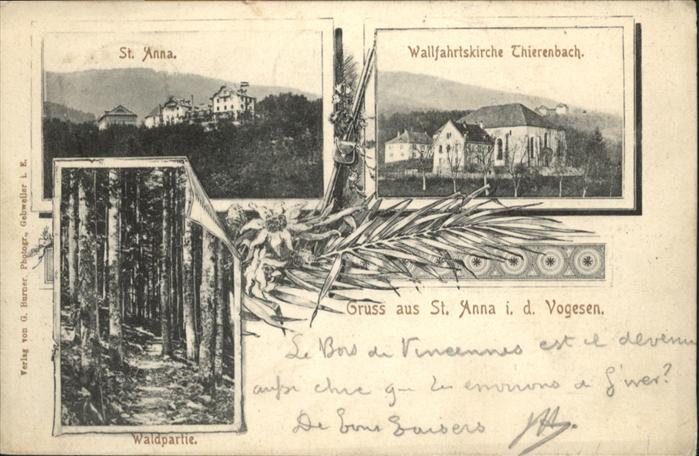 St. Anna.
Wallfahrtskirche Thierenbach.
Verlag von G. Burner, Photogr., Gebweiler i. E.
Gruss aus St. Anna i. d. Vogesen.
Le Bois de Vincennes est il devenu
aussi chic que les environs de
De bons baisers
Waldpartie.